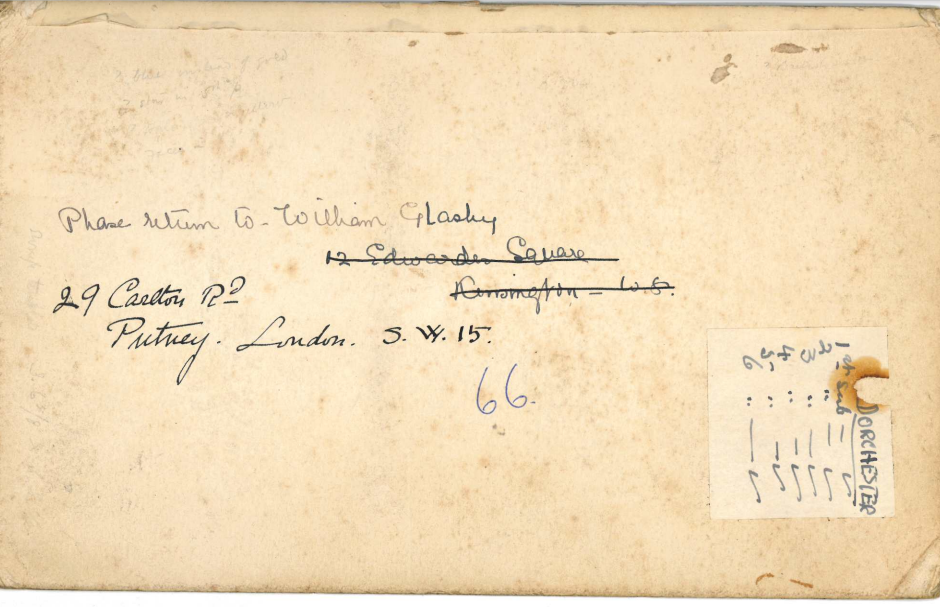 Please return to - William Glasby
12 Edwardes Square
Kensington - W.8.
29 Carlton Rd
Putney. London. S.W.15.
66.
DORCHESTER
1st Sub
2nd "
3 "
4 "
5 "
6 "